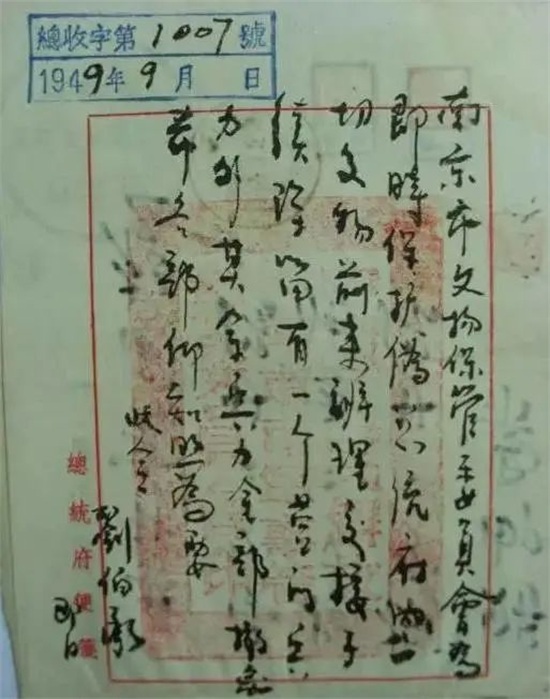 總收字第1007號
1949年9月 日
南京市文物保管委員會為
即時保护偽总统府內各
切文物前来辦理交接手
续除留有一个营的兵
力外其余兵力全部撤出
希各部仰知照為要
此令
劉伯承
即日
總統府便箋